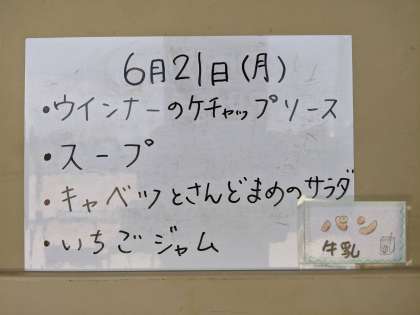 6月21日(月)
・ウインナーのケチャップソース
・スープ
・キャベツとさんどまめのサラダ
・いちごジャム
パン
牛乳